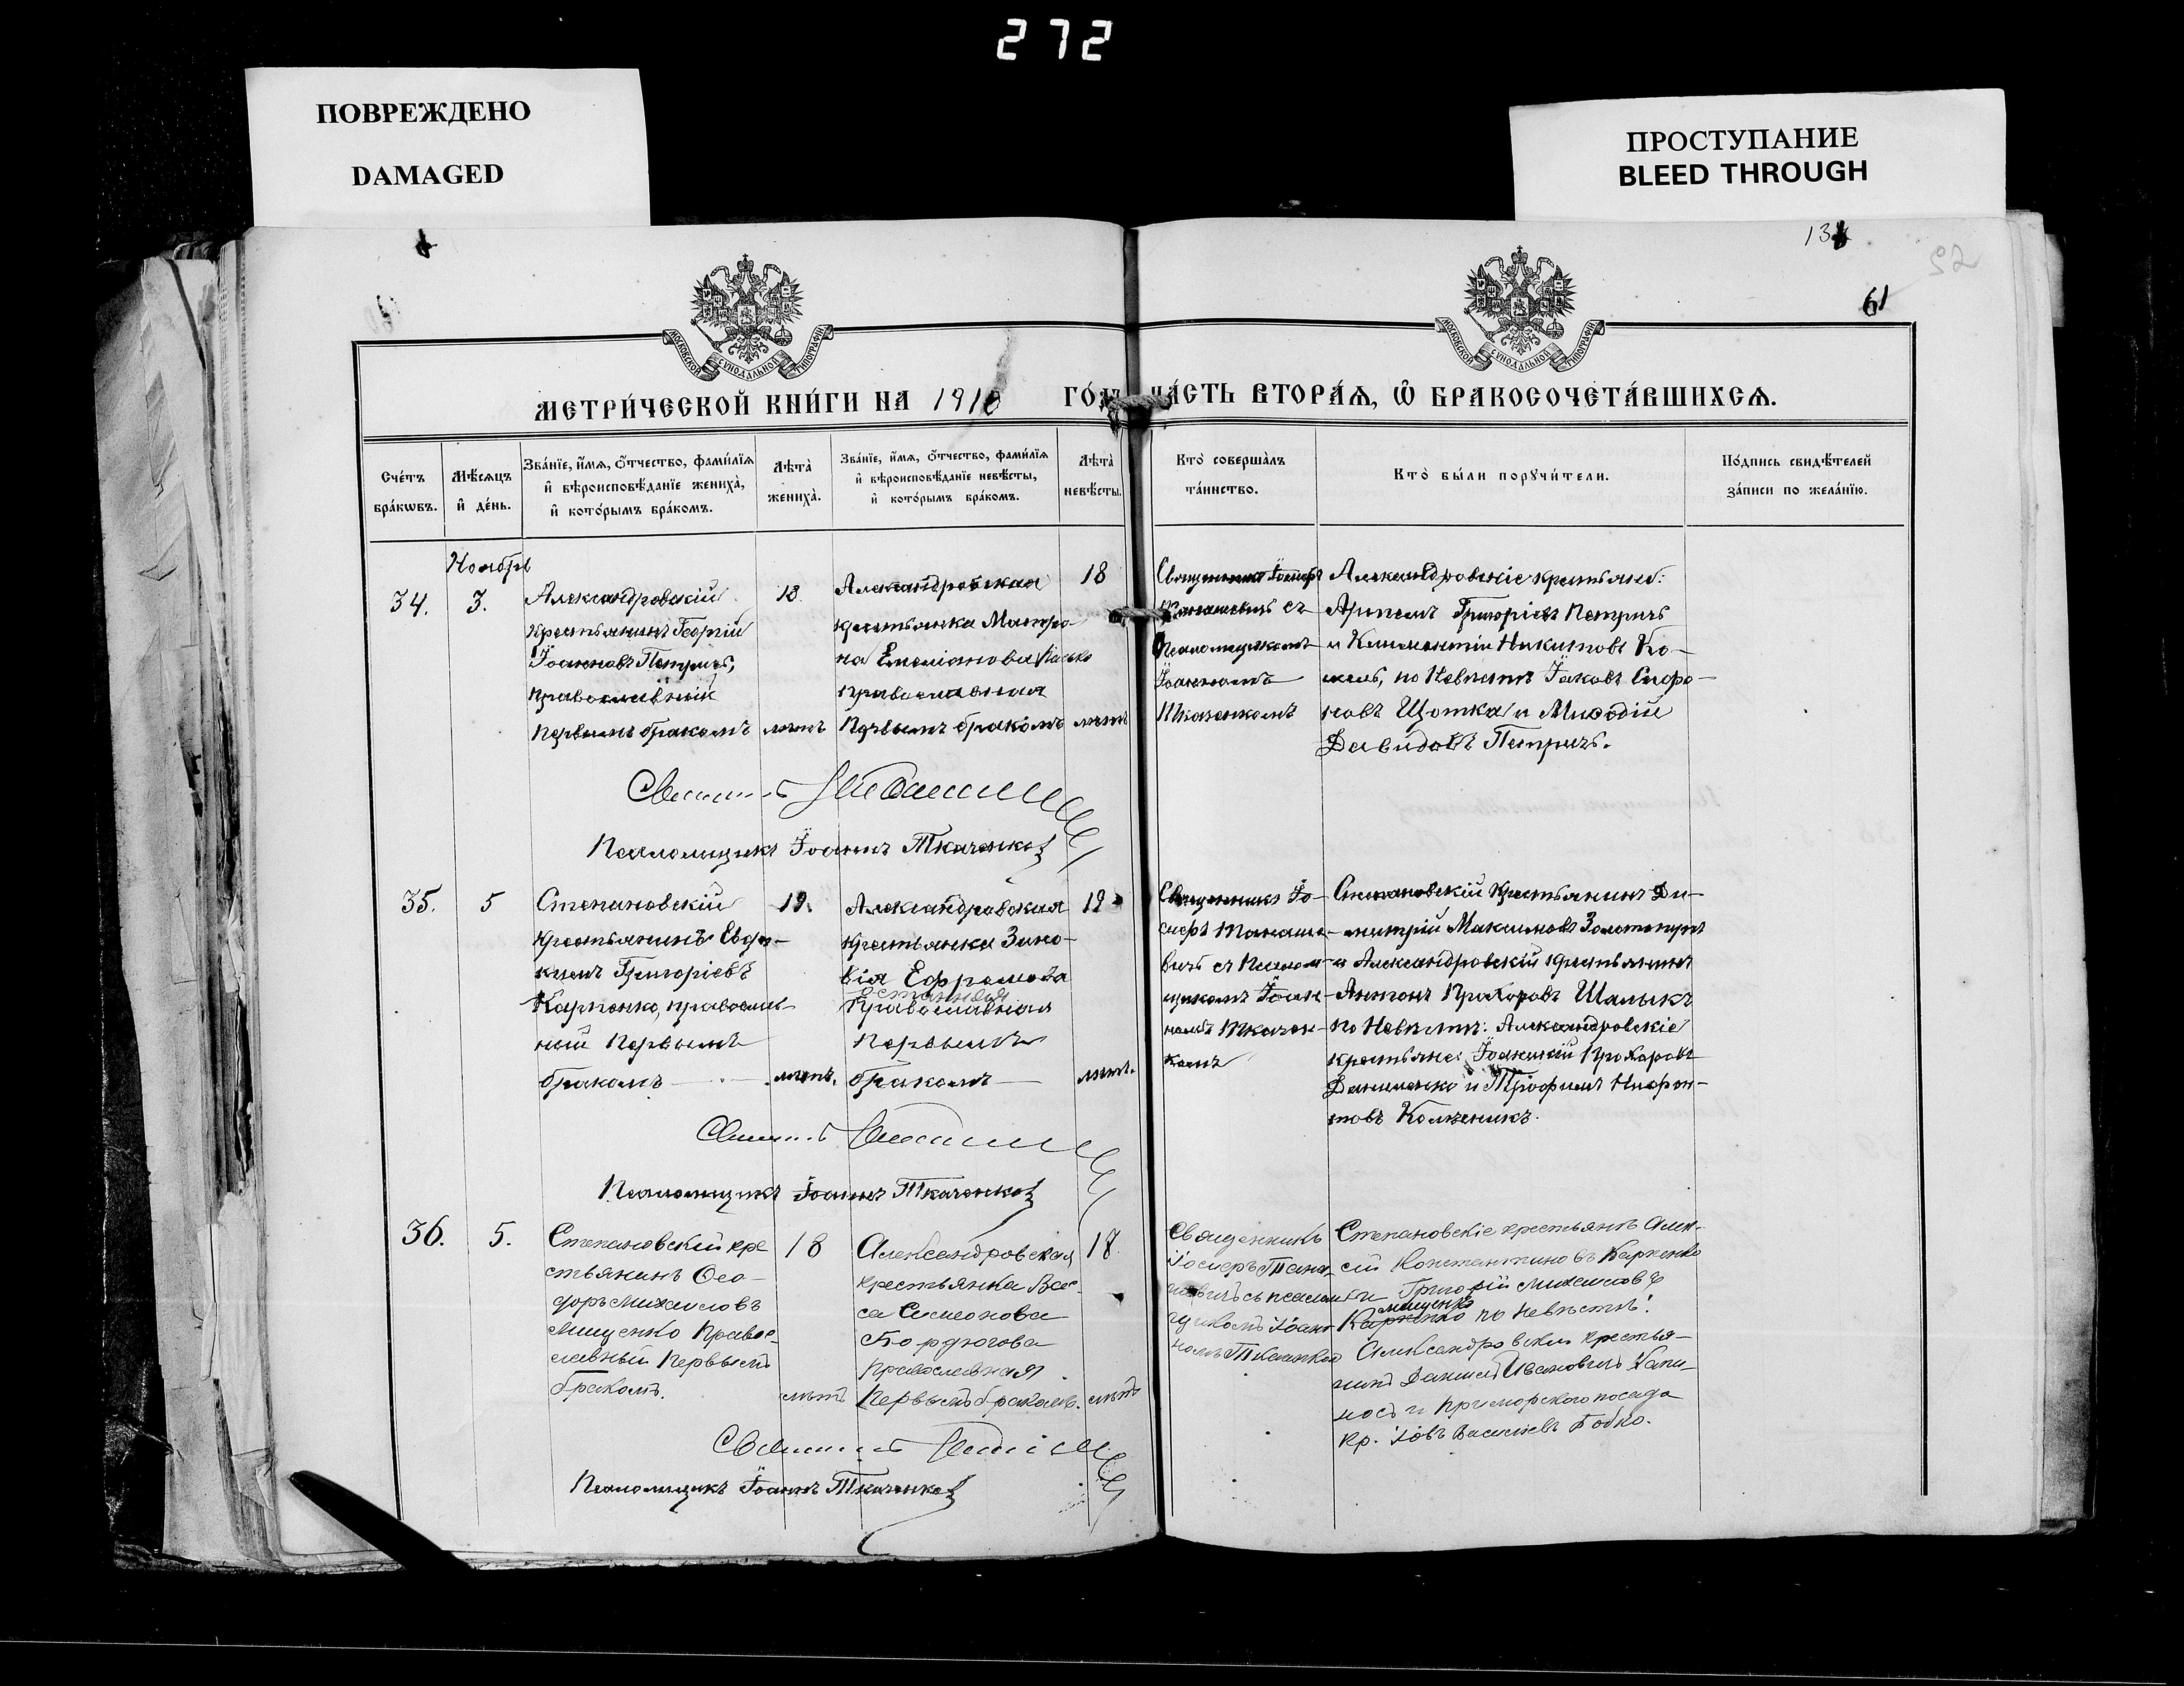 272
ПОВРЕЖДЕНО
DAMAGED
ПРОСТУПАНИЕ
BLEED THROUGH
61
МОСКОВСКОЙ СѴНОДАЛЬНОЙ ТИПОГРАФІИ
МОСКОВСКОЙ СѴНОДАЛЬНОЙ ТИПОГРАФІИ
МЕТРИ́ЧЕСКОЙ КНИ́ГИ НА 1910 ГО́ДЪ ЧА́СТЬ ВТОРА́Ѧ, Ѡ҆ БРАКОСОЧЕТА́ВШИХСѦ.
Сче́тъ бра́кѡвъ.
Мѣ́сяцъ и҆ де́нь.
Зва́нїе, и҆́мѧ, ѻ҆́тчество, фами́лїѧ
и҆ вѣроисповѣ́данїе жениха̀,
и҆ кото́рымъ бра́комъ.
Лѣта̀ жениха̀.
Зва́нїе, и҆́мѧ, ѻ҆́тчество, фами́лїѧ
и҆ вѣроисповѣ́данїе невѣ́сты,
и҆ кото́рымъ бра́комъ.
Лѣта̀ невѣ́сты.
Кто̀ соверша́лъ та́инство.
Кто̀ бы́ли порꙋчи́тели.
По́дпись свидѣ́телей за́писи по жела́нїю.
Ноябрь
34.
3.
Александровскій
крестьянинъ Георгій
Іоанновъ Петричъ,
православный
первымъ бракомъ
18
лѣтъ
Александровская
крестьянка Матро-
на Емеліанова
православная
первымъ бракомъ
18
лѣтъ
Священникъ Іосифъ
Танашевичъ съ
псаломщикомъ
Іоанномъ
Ткаченкомъ
Александровскіе крестьяне:
Григоріевъ Петричъ
и Климентій Никитовъ Ко-
по невѣстѣ Іаковъ Софро-
новъ Щотка и Меѳодій
Давидовъ Петричъ.
Псаломщикъ Іоаннъ Ткаченко
35.
5
Степановскій
крестьянинъ Евдо-
кимъ Григоріевъ
Карпенко, православ-
ный первымъ
бракомъ
19.
лѣтъ.
Александровская
крестьянка Зино-
вія Ефремова
православная
первымъ
бракомъ
19
лѣтъ.
Священникъ Іо-
сифъ Танаше-
вичъ съ псалом-
щикомъ Іоан-
номъ Ткачен-
комъ
Степановскій крестьянинъ Ди-
митрій Максимовъ
и Александровскій крестьянинъ
Антонъ Прохоровъ Шалыкъ
по невѣстѣ: Александровскіе
крестьяне: Іоанникій Прохоровъ
Даниленко и Трофимъ Нифон-
товъ
Псаломщикъ Іоаннъ Ткаченко
36.
5.
Степановскій кре
стьянинъ Ѳео-
доръ Михаиловъ
Мищенко Право-
славный первымъ
бракомъ.
18
лѣтъ
Александровская
крестьянка Вас-
са Симеонова
Бордюгова
православная
первымъ бракомъ.
18
лѣтъ
Священникъ
Іосифъ Тана-
шевичъ съ псалом-
щикомъ Іоан-
номъ Ткаченко
Степановскіе крестьянѣ Алек-
сій Константиновъ Карпенко
и Григорій Михаиловъ
Мищенко
Карпенко по невѣстѣ:
Александровскій крестья-
нинъ Даніилъ Ивановичъ Капи-
носъ и приморскаго посада
кр. Іовъ Васильевъ Бобко.
Псаломщикъ Іоаннъ Ткаченко